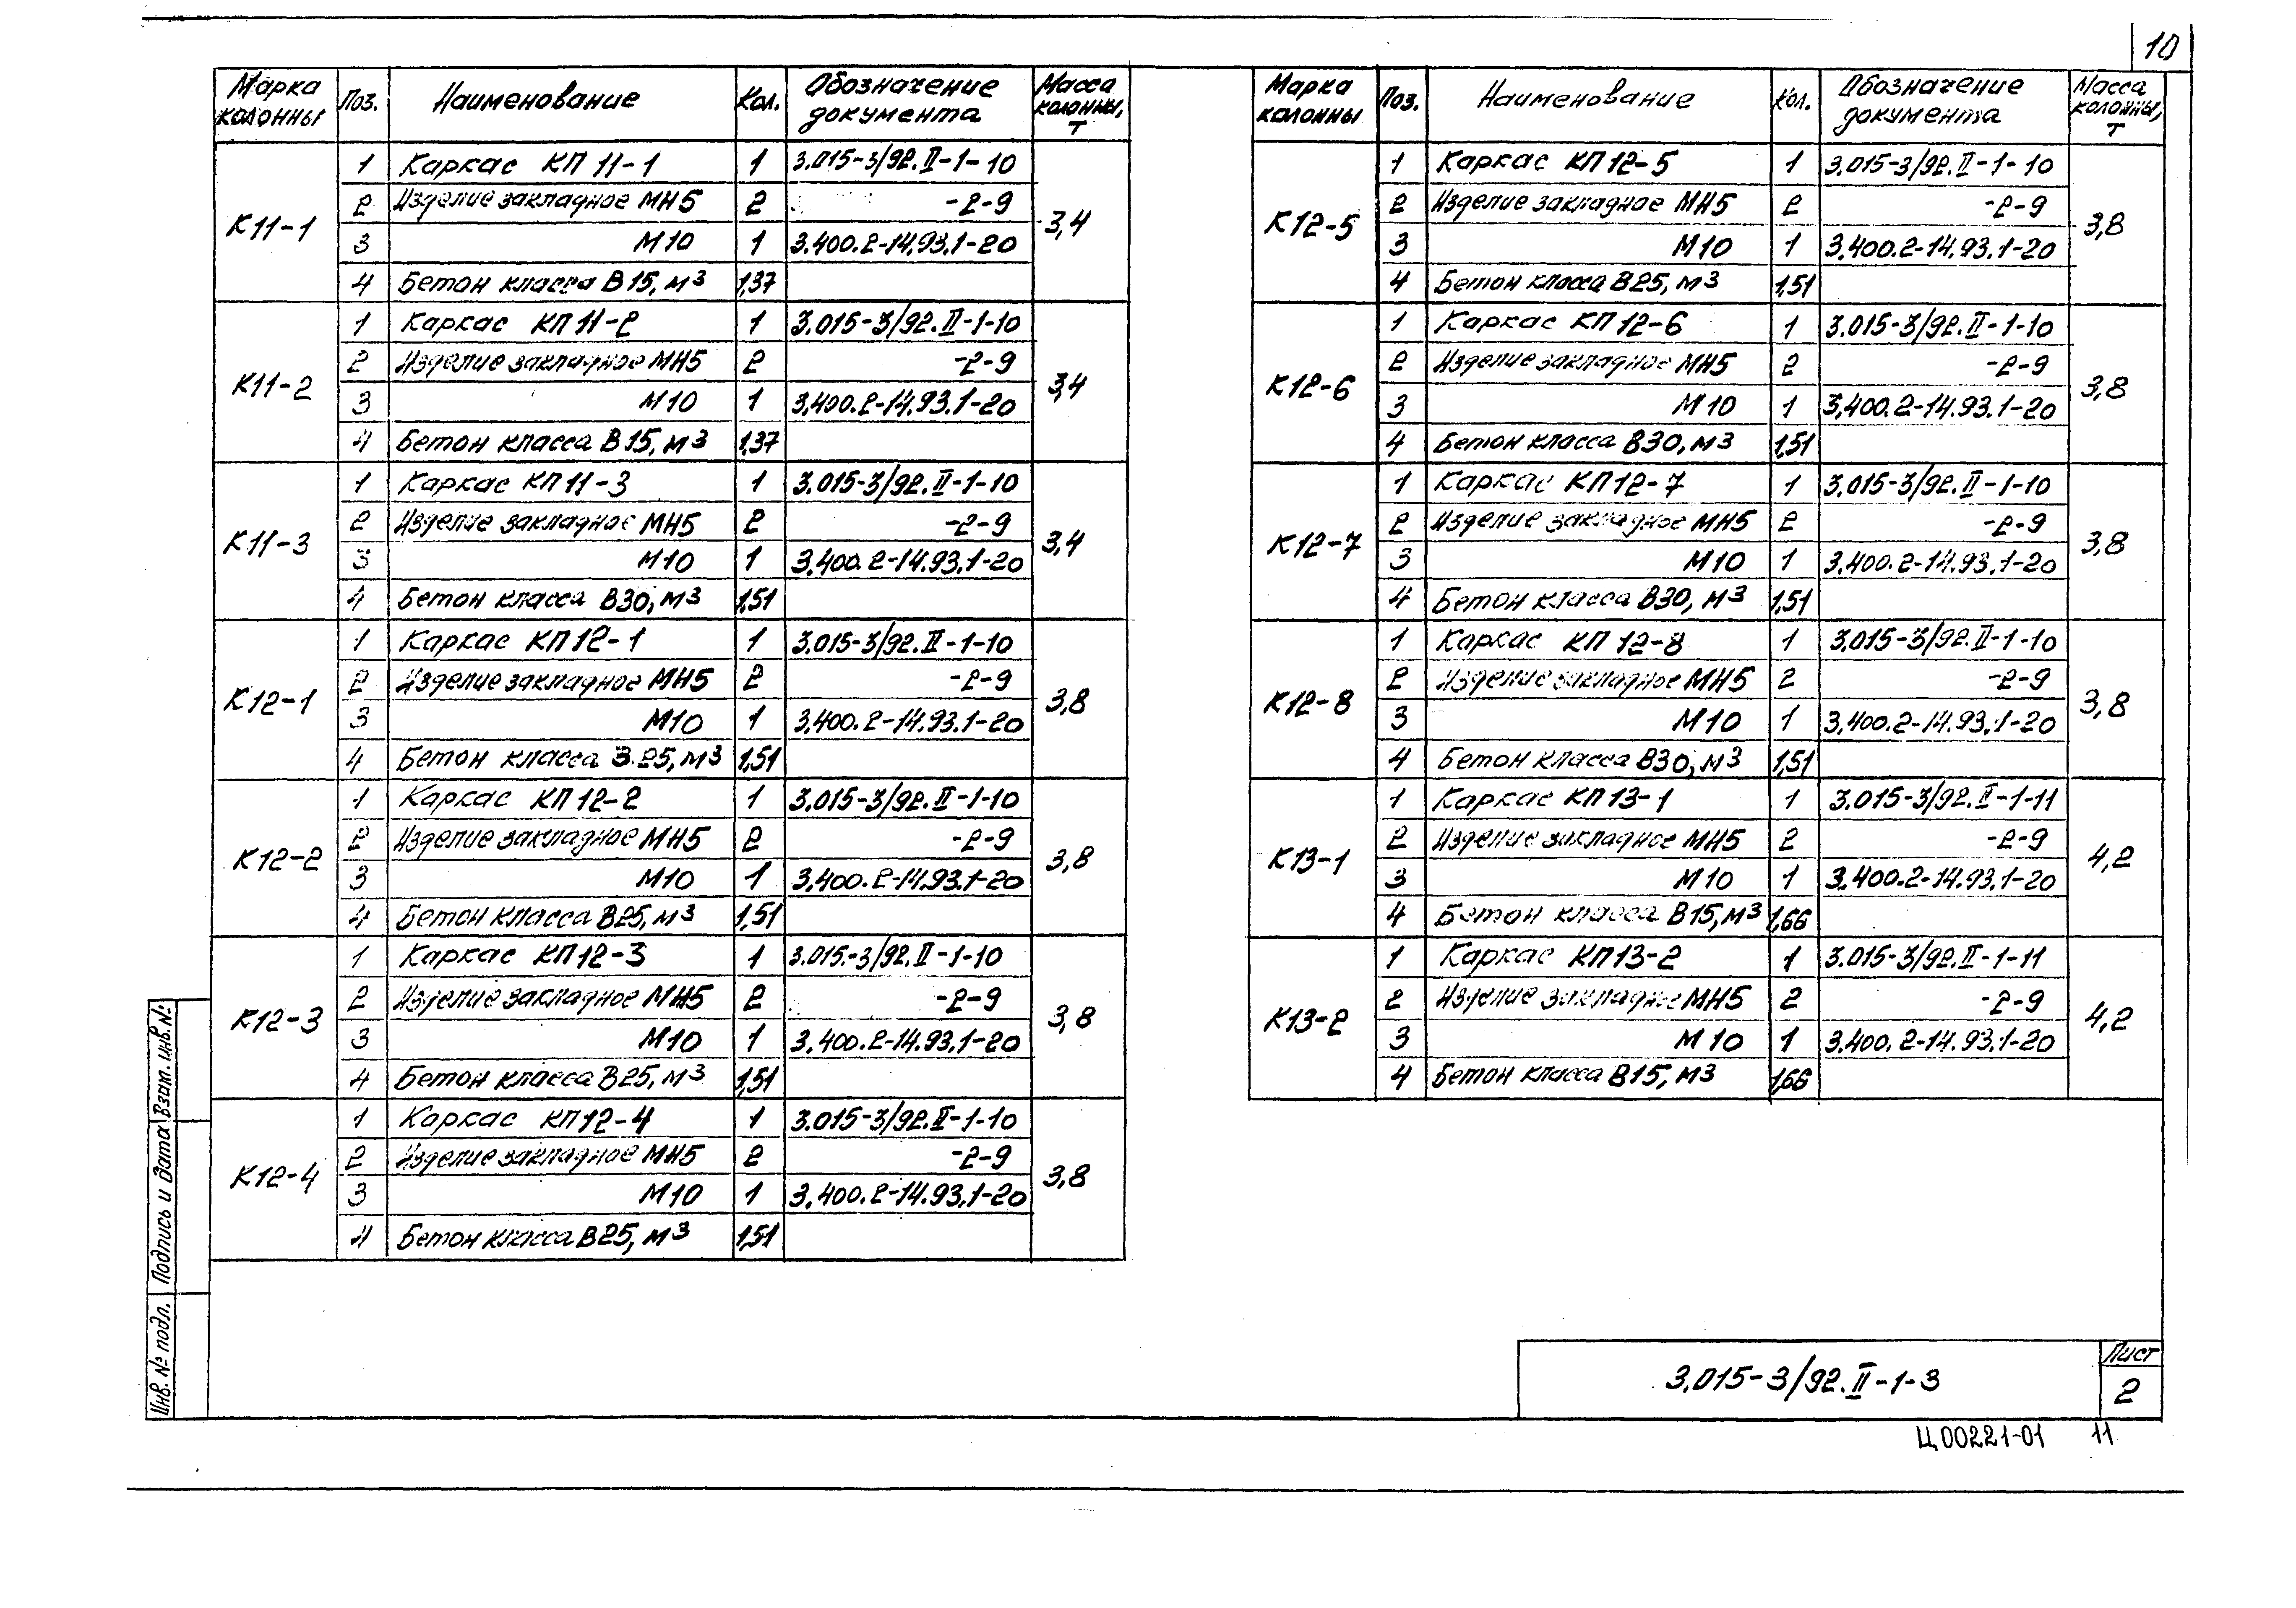 10
Марка колонны Поз. Наименование Кол. Обозначение документа Масса колонны, т
К11-1 3,4
1 Каркас КП 11-1 1 3.015-3/92.II-1-10
2 Изделие закладное МН5 2 -2-9
3 М10 1 3.400.2-14.93.1-20
4 Бетон класса В15, м3 1,37
К11-2 3,4
1 Каркас КП 11-2 1 3.015-3/92.II-1-10
2 Изделие закладное МН5 2 -2-9
3 М10 1 3.400.2-14.93.1-20
4 Бетон класса В15, м3 1,37
К11-3 3,4
1 Каркас КП 11-3 1 3.015-3/92.II-1-10
2 Изделие закладное МН5 2 -2-9
3 М10 1 3.400.2-14.93.1-20
4 Бетон класса В30, м3 1,51
К12-1 3,8
1 Каркас КП 12-1 1 3.015-3/92.II-1-10
2 Изделие закладное МН5 2 -2-9
3 М10 1 3.400.2-14.93.1-20
4 Бетон класса В25, м3 1,51
К12-2 3,8
1 Каркас КП 12-2 1 3.015-3/92.II-1-10
2 Изделие закладное МН5 2 -2-9
3 М10 1 3.400.2-14.93.1-20
4 Бетон класса В25, м3 1,51
К12-3 3,8
1 Каркас КП 12-3 1 3.015-3/92.II-1-10
2 Изделие закладное МН5 2 -2-9
3 М10 1 3.400.2-14.93.1-20
4 Бетон класса В25, м3 1,51
К12-4 3,8
1 Каркас КП 12-4 1 3.015-3/92.II-1-10
2 Изделие закладное МН5 2 -2-9
3 М10 1 3.400.2-14.93.1-20
4 Бетон класса В25, м3 1,51
Марка колонны Поз. Наименование Кол. Обозначение документа Масса колонны, т
К12-5 3,8
1 Каркас КП 12-5 1 3.015-3/92.II-1-10
2 Изделие закладное МН5 2 -2-9
3 М10 1 3.400.2-14.93.1-20
4 Бетон класса В25, м3 1,51
К12-6 3,8
1 Каркас КП 12-6 1 3.015-3/92.II-1-10
2 Изделие закладное МН5 2 -2-9
3 М10 1 3.400.2-14.93.1-20
4 Бетон класса В30, м3 1,51
К12-7 3,8
1 Каркас КП 12-7 1 3.015-3/92.II-1-10
2 Изделие закладное МН5 2 -2-9
3 М10 1 3.400.2-14.93.1-20
4 Бетон класса В30, м3 1,51
К12-8 3,8
1 Каркас КП 12-8 1 3.015-3/92.II-1-10
2 Изделие закладное МН5 2 -2-9
3 М10 1 3.400.2-14.93.1-20
4 Бетон класса В30, м3 1,51
К13-1 4,2
1 Каркас КП 13-1 1 3.015-3/92.II-1-11
2 Изделие закладное МН5 2 -2-9
3 М10 1 3.400.2-14.93.1-20
4 Бетон класса В15, м3 1,66
К13-2 4,2
1 Каркас КП 13-2 1 3.015-3/92.II-1-11
2 Изделие закладное МН5 2 -2-9
3 М10 1 3.400.2-14.93.1-20
4 Бетон класса В15, м3 1,66
Инв. № подл. Подпись и дата Взам. инв. №:
3.015-3/92.II-1-3
Лист
2
Ц00221-01 11